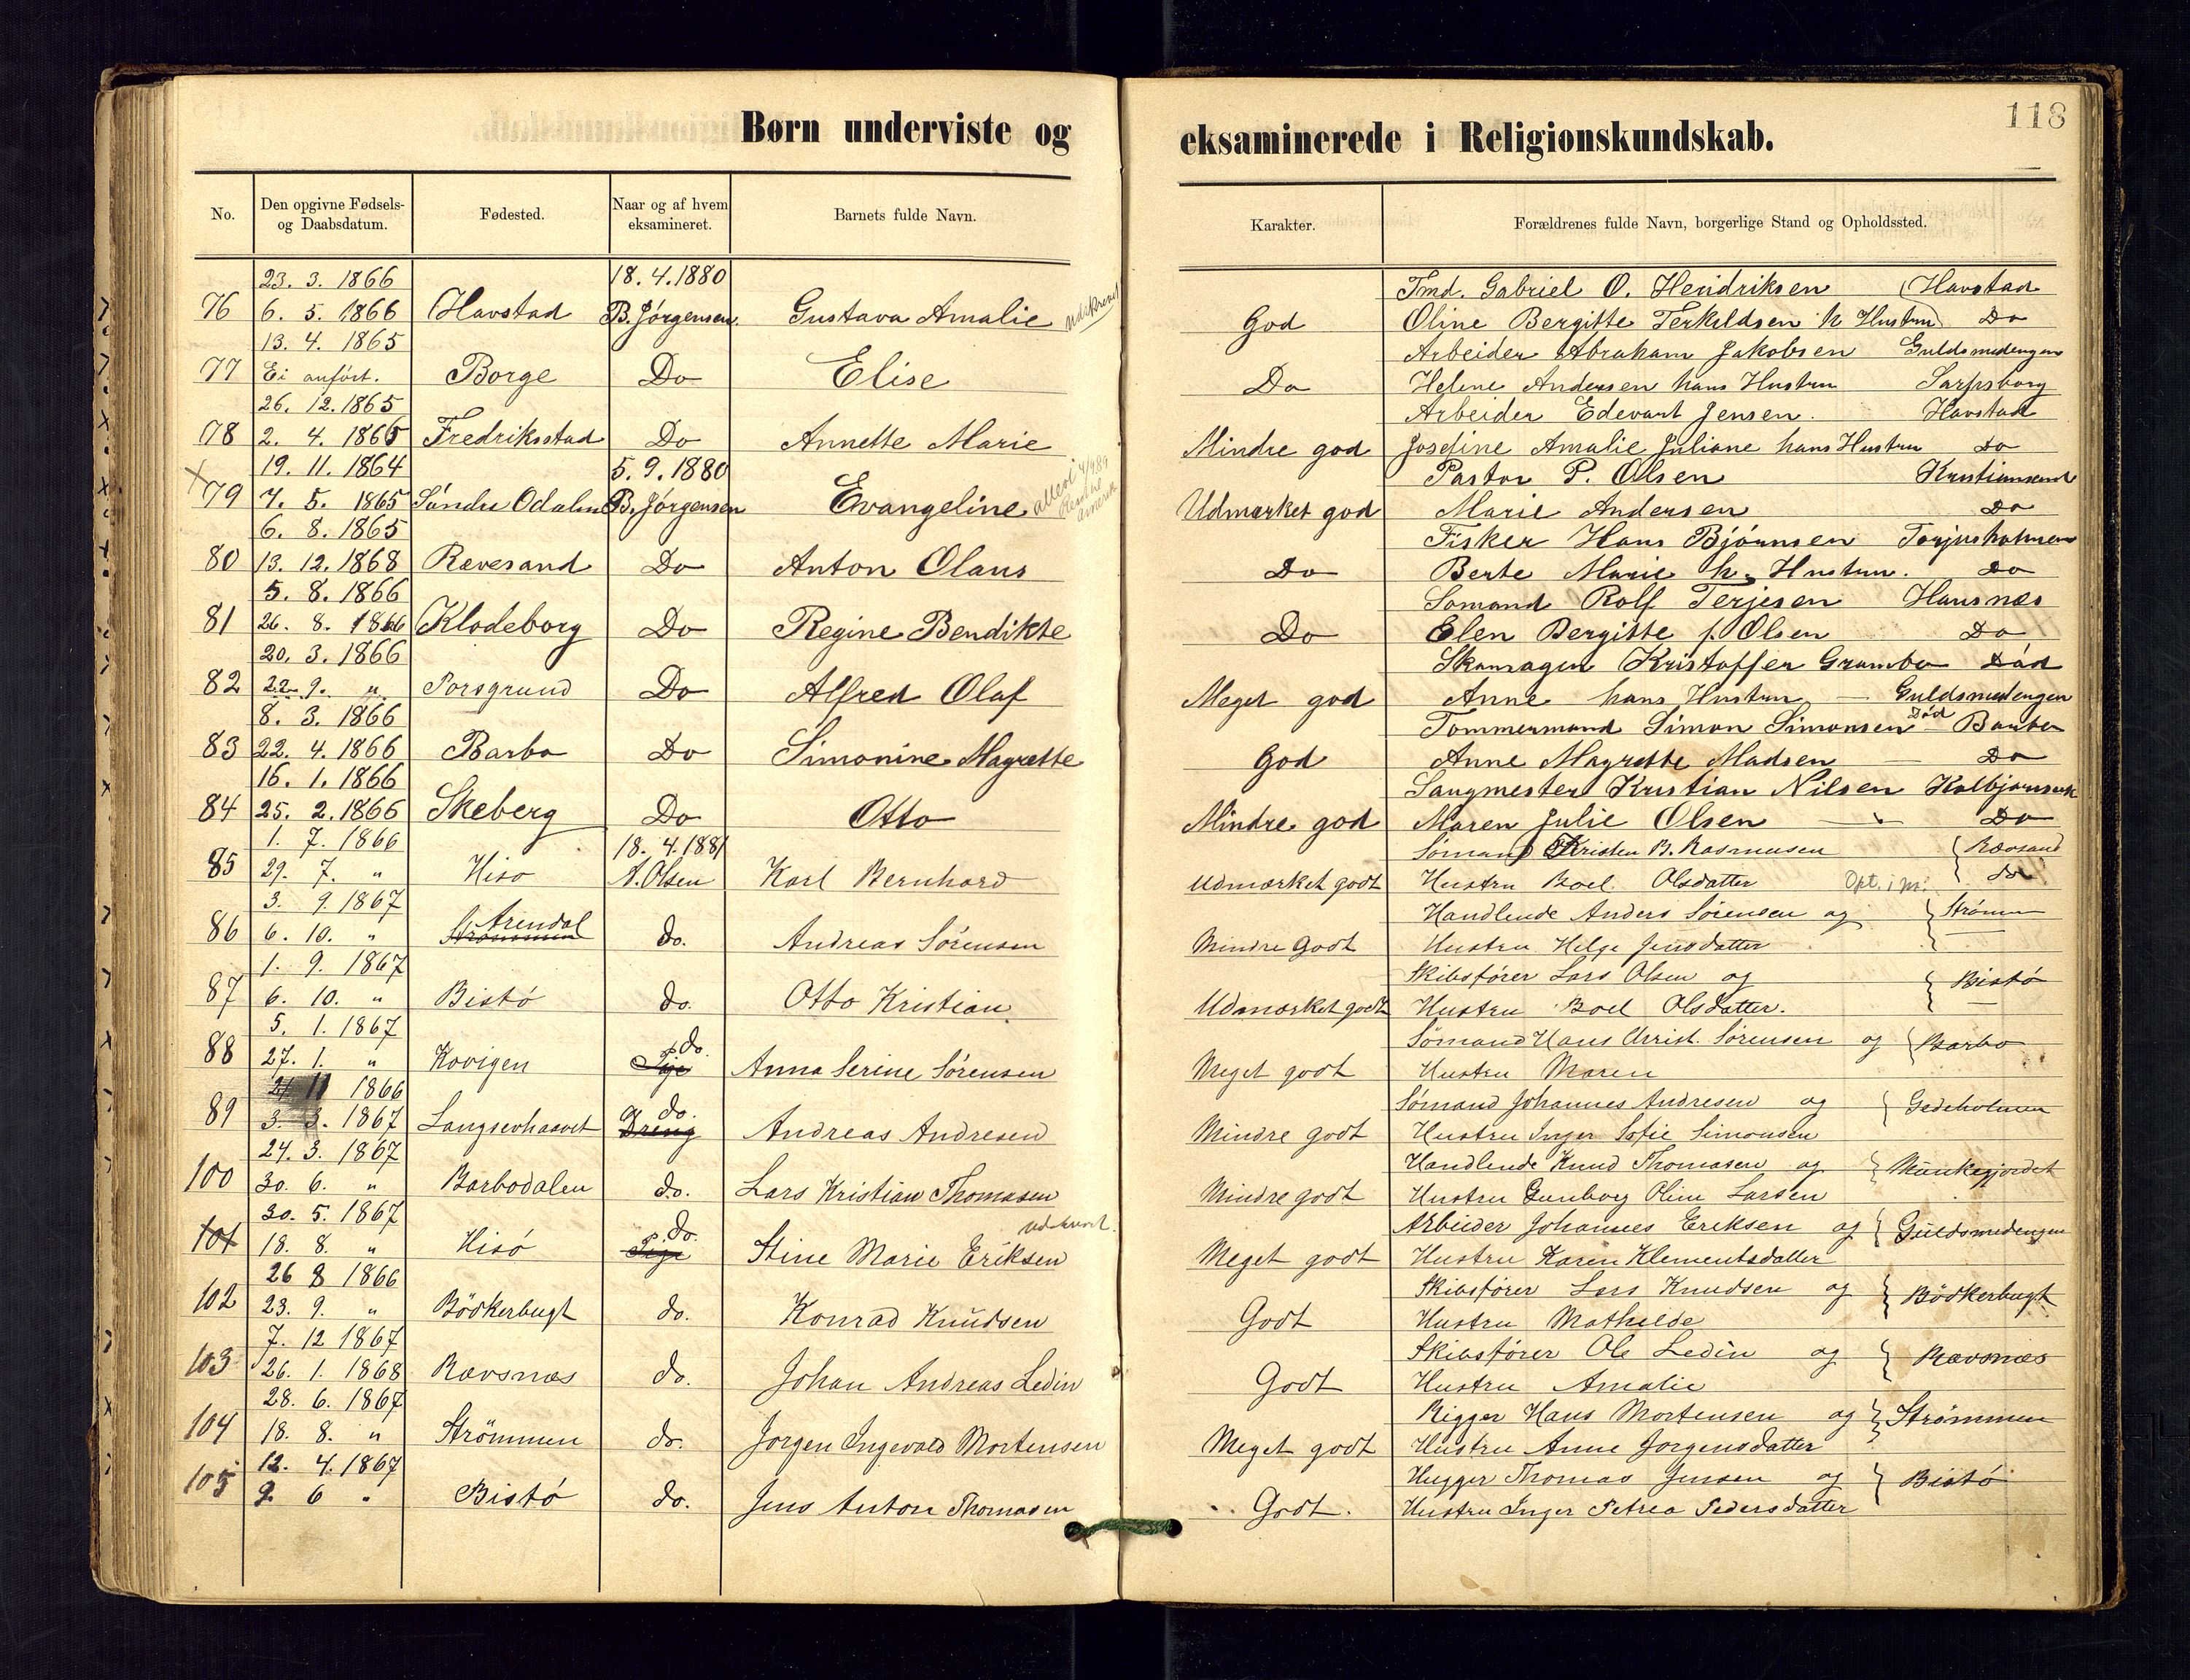 118
Børn underviste og eksaminerede i Religionskundskab.
No. Den opgivne Fødsels- og Daabsdatum. Fødested. Naar og af hvem eksamineret. Barnets fulde Navn. Karakter. Forældrenes fulde Navn, borgerlige Stand og Opholdssted.
23. 3. 1866 18. 4. 1880 Tmd. Gabriel O. Hendriksen Havstad
76 6. 5. 1866 Havstad B. Jørgensen Gustava Amalie God Oline Bergitte Terkildsen h Hustru Do
13. 4. 1865 Arbeider Abraham Jakobsen Guldsmedengen
77 Ei anført. Borge Do Elise Do Helene Andersen hans Hustru Sarpsborg
26. 12. 1865 Arbeider Edevart Jensen. Havstad
78 2. 4. 1865 Fredriksstad Do Annette Marie Mindre god Josefine Amalie Juliane hans Hustru Do
19. 11. 1864 5. 9. 1880 Pastor P. Olsen Kristiansand
79 7. 5. 1865 Søndre Odalen B. Jørgensen Evangeline Udmærket god Marie Andersen Do
6. 8. 1865 Fisker Hans Bjørnsen Torjusholmen
80 13. 12. 1868 Revesand Do Anton Olaus Do Berte Marie h. Hustru. Do
5. 8. 1866 Somand Rolf Terjesen Hausnæs
81 26. 8. 1866 Klodeborg Do Regine Bendikte Do Elen Bergitte f. Olsen Do
20. 3. 1866 Skomager Kristoffer Grambo Død
82 22. 9. " Porsgrund Do Alfred Olaf Meget god Anne hans Hustru Guldsmedengen
8. 3. 1866 Tømmermand Simon Simonsen Død Barbo
83 22. 4. 1866 Barbo Do Simonine Magrette God Anne Magrette Madsen Do
16. 1. 1866 Saugmester Kristian Nilsen Kolbjørnsvik
84 25. 2. 1866 Skeberg Do Otto Mindre god Maren Julie Olsen Do
1. 7. 1866 18. 4. 1881 Sømand Kristen B. Rasmussen Rævsand
85 29. 7. " Hisø A. Olsen Karl Bernhard Udmærket godt Hustru Boel Olsdatter Opt. i M. do
3. 9. 1867 Handlende Anders Sørensen og Strømm
86 6. 10. " Arendal do. Andreas Sørensen Mindre Godt Hustru Helge Jensdatter
1. 9. 1867 Skibsfører Lars Olsen og Bistø
87 6. 10. " Bistø do. Otto Kristian Udmærket godt Hustru Boel Olsdatter.
5. 1. 1867 Sømand Hans Christ. Sørensen og Barbo
88 27. 1. " Kovigen do. Anna Serine Sørensen Meget godt Hustru Maren
21 11 1866 Sømand Johannes Andresen og Gedeholmen
89 3. 3. 1867 Langsevhaavet do. Dreng Andreas Andresen Mindre godt Hustru Inger Sofie Simonsen
24. 3. 1867 Handlende Knud Thomasen og Munkegjordet
100 30. 6. " Barbodalen do. Lars Kristian Thomasen Mindre godt Hustru Gunborg Oline Larsen
30. 5. 1867 Arbeider Johannes Eriksen og Guldsmedengen
101 18. 8. " Hisø do. Pige Stine Marie Eriksen Meget godt Hustru Karen Klementsdatter
26 8 1866 Skibsfører Lars Knudsen og Bödkerbugt
102 23. 9. " Bödkerbugt do. Konrad Knudsen Godt Hustru Mathilde
7. 12 1867 Skibsfører Ole Ledin og Rævsnæs
103 26. 1. 1868 Rævsnæs do. Johan Andreas Ledin Godt Hustru Amalie
28. 6. 1867 Rigger Hans Mortensen og Strömmen
104 18. 8. " Strömmen do. Jørgen Ingevald Mortensen Meget godt Hustru Anne Jørgensdatter
12. 4. 1867 Hugger Thomas Jensen og Bistø
105 9. 6 " Bistø do. Jens Anton Thomasen Godt. Hustru Inger Petrea Pedersdatter